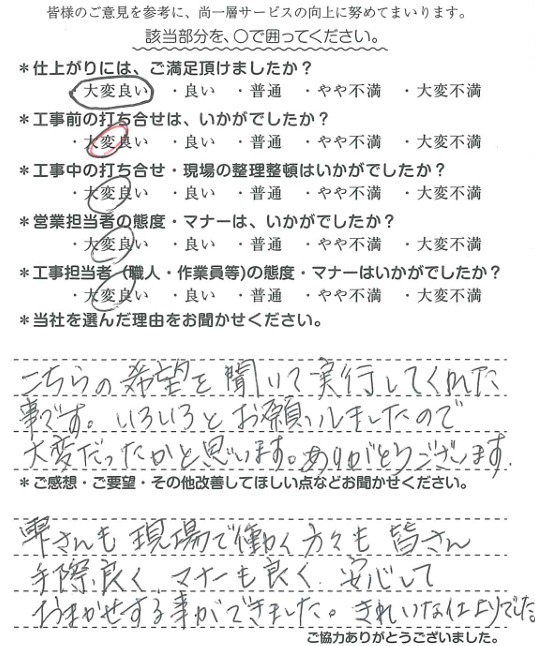 皆様のご意見を参考に、尚一層サービスの向上に努めてまいります。
該当部分を、○で囲ってください。
＊仕上がりには、ご満足頂けましたか？
・大変良い ・良い ・普通 ・やや不満 ・大変不満
＊工事前の打ち合せは、いかがでしたか？
・大変良い ・良い ・普通 ・やや不満 ・大変不満
＊工事中の打ち合せ・現場の整理整頓はいかがでしたか？
・大変良い ・良い ・普通 ・やや不満 ・大変不満
＊営業担当者の態度・マナーは、いかがでしたか？
・大変良い ・良い ・普通 ・やや不満 ・大変不満
＊工事担当者（職人・作業員等)の態度・マナーはいかがでしたか？
・大変良い ・良い ・普通 ・やや不満 ・大変不満
＊当社を選んだ理由をお聞かせください。
こちらの希望を聞いて実行してくれた
事です。いろいろとお願いしましたので
大変だったかと思います。ありがとうございます.
＊ご感想・ご要望・その他改善してほしい点などお聞かせください。
さんも現場で働く方々も皆さん
手際良く マナーも良く 安心して
おまかせする事ができました。きれいな仕上りでした。
ご協力ありがとうございました。